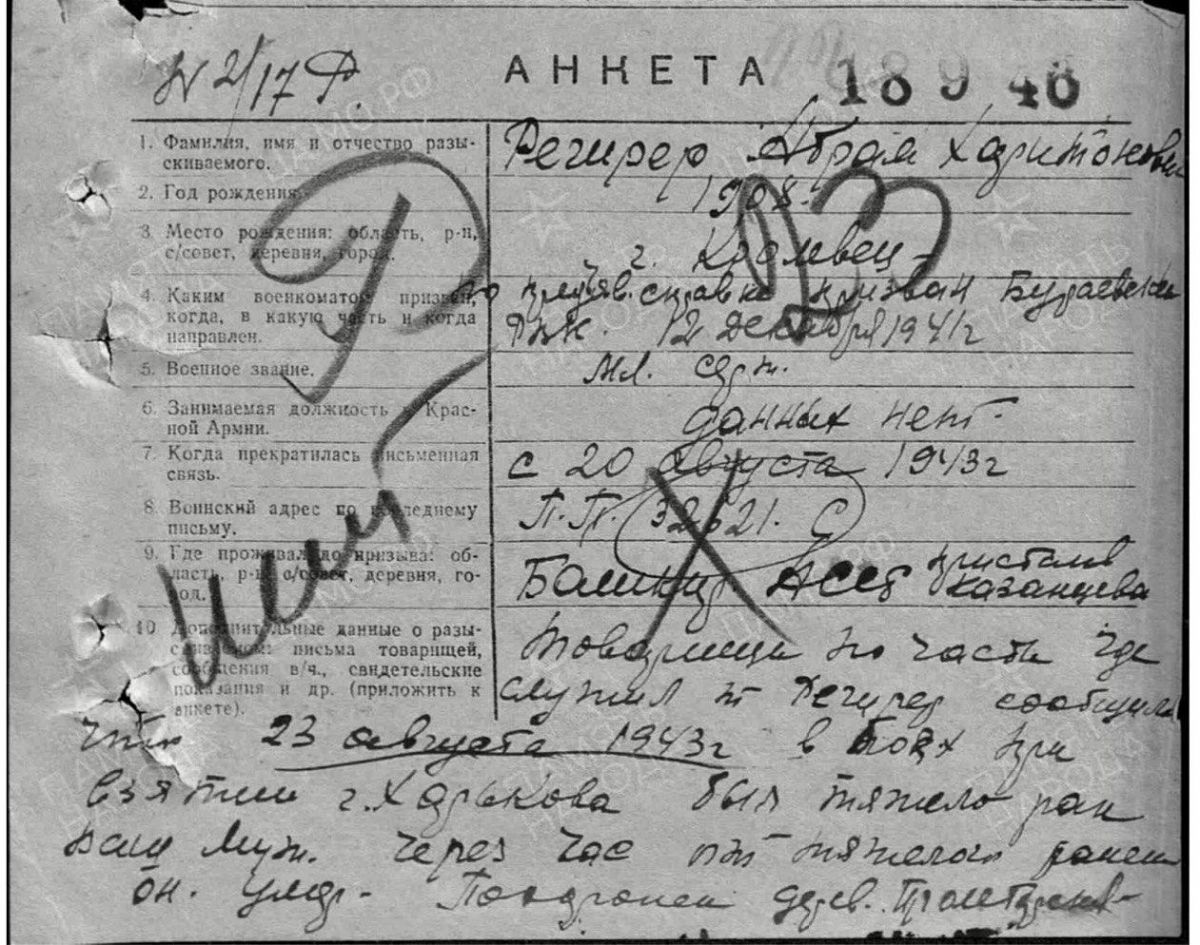 N 2/17 Р. АНКЕТА 18 9 46
1. Фамилия, имя и отчество разы-
скиваемого.
Регирер Абрам Харитонович
2. Год рождения.
1908.
3. Место рождения: область, р-н,
с/совет, деревня, город.
г. Кролевец
4. Каким военкоматом призван,
когда, в какую часть и когда
направлен.
справке призван Бураевским
РВК. 12 декабря 1941 г
5. Военное звание.
Мл. серж.
6. Занимаемая должность в Крас-
ной Армии.
данных нет.
7. Когда прекратилась письменная
связь.
с 20 августа 1943 г
8. Воинский адрес по последнему
письму.
П.П. 32621. С
9. Где проживал до призыва: об-
ласть, р-н, с/совет, деревня, го-
род.
Башкир. АССР пристань
Казанцева
10 Дополнительные данные о разы-
скиваемом: письма товарищей,
сообщения в/ч., свидетельские
показания и др. (приложить к
анкете).
товарищи по части где
служил т Регирер сообщили
что 23 августа 1943 г в боях при
взятии г. Харькова был тяжело ран
Ваш муж. Через час от тяжелого ранен
он. умер. Похоронен дерев.